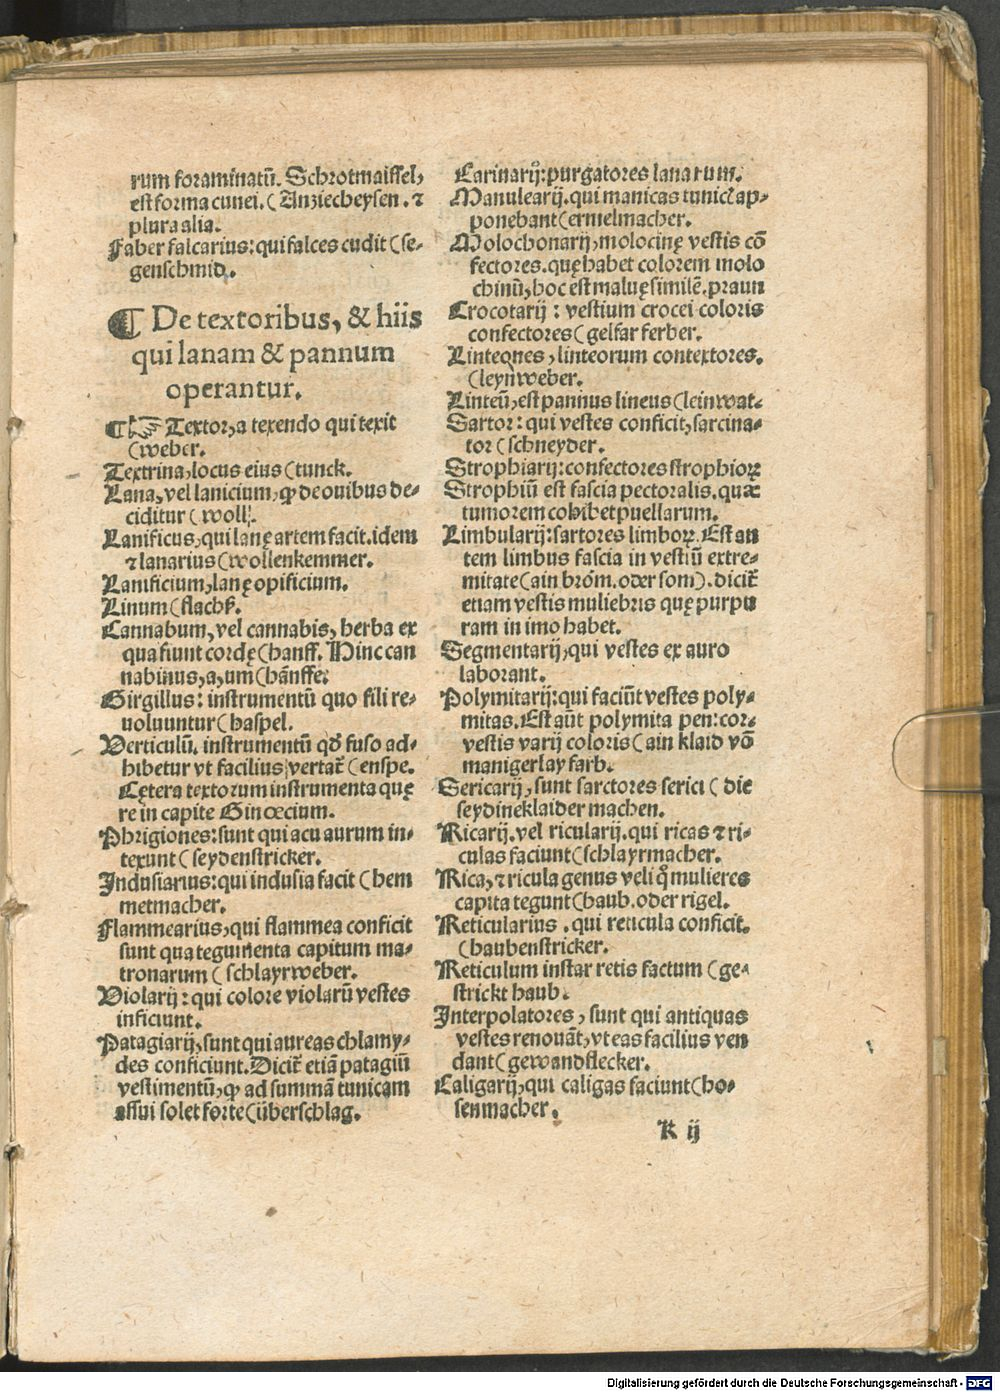 rum foraminatū. Schrotmaissel,
est forma cunei. (Anziecheysen. ⁊
plura alia.
Faber falcarius: qui falces cudit (se-
genschmid.
¶ De textoribus, & hiis
qui lanam & pannum
operantur.
¶☞ Textor, a texendo qui texit
(weber.
Textrina, locus eius (tunck.
Lana, vel lanicium, ꝙ de ouibus de-
ciditur (woll.
Lanificus, qui lanę artem facit. idem
⁊ lanarius (wollenkemmer.
Lanificium, lanę opificium.
Linum (flachß.
Cannabum, vel cannabis, herba ex
qua fiunt cordę (hanff. Hinc can
nabinus, a, um (hānffe.
Girgillus: instrumentū quo fili re-
uoluuntur (haspel.
Verticulū. instrumentū qđ fuso ad-
hibetur vt facilius vertat̄ (enspe.
Cętera textorum instrumenta quę
re in capite Ginoecium.
Phrigiones: sunt qui acu aurum in-
texunt (seydenstricker.
Indusiarius: qui indusia facit (hem
metmacher.
Flammearius, qui flammea conficit
sunt qua tegumenta capitum ma-
tronarum (schlayrweber.
Violarij: qui colore violarū vestes
inficiunt.
Patagiarij, sunt qui aureas chlamy-
des conficiunt. Dicit̄ etiā patagiū
vestimentū, ꝙ ad summā tunicam
assui solet forte (überschlag.
Carinarij: purgatores lanarum.
Manulearij. qui manicas tunicę ap-
ponebant (ermelmacher.
Molochonarij, molocinę vestis cō
fectores. quę habet colorem molo
chinū, hoc est maluę similē. praun
Crocotarij: vestium crocei coloris
confectores (gelfar ferber.
Linteones, linteorum contextores.
(leynweber.
Linteū, est pannus lineus (leinwat.
Sartor: qui vestes conficit, sarcina-
tor (schneyder.
Strophiarij: confectores strophioꝝ
Strophiū est fascia pectoralis. quæ
tumorem cohibet puellarum.
Limbularij: sartores limboꝝ. Est au
tem limbus fascia in vestiū extre-
mitate (ain bröm. oder som). dicit̄
etiam vestis muliebris quę purpu
ram in imo habet.
Segmentarij, qui vestes ex auro
laborant.
Polymitarij: qui faciūt vestes poly-
mitas. Est aūt polymita pen: cor.
vestis varij coloris (ain klaid vō
manigerlay farb.
Sericarij, sunt sarctores serici (die
seydine klaider machen.
Ricarij. vel ricularij. qui ricas ⁊ ri-
culas faciunt (schlayrmacher.
Rica, ⁊ ricula genus veli q̊ mulieres
capita tegunt (haub. oder rigel.
Reticularius. qui reticula conficit.
(haubenstricker.
Reticulum instar retis factum (ge-
strickt haub.
Interpolatores, sunt qui antiquas
vestes renouāt, vt eas facilius ven
dant (gewandflecker.
Caligarij, qui caligas faciunt (ho-
senmacher.
K ij
Digitalisierung gefördert durch die Deutsche Forschungsgemeinschaft - DFG